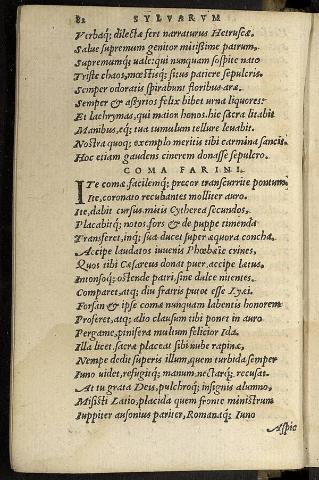 82 SYLVARVM
Verbaq; dilectæ fert narraturus Hetruscæ.
Salue supremum genitor mitissime patrum,
Supremumq; uale: qui nunquam sospite nato
Triste chaos, mœstiq; situs patiere sepulcri.
Semper odoratis spirabunt floribus aræ.
Semper & assyrios felix bibet urna liquores:
Et lachrymas, qui maior honos. hic sacra litabit
Manibus, eq; tua tumulum tellure leuabit.
Nostra quoq; exemplo meritis tibi carmina sancit.
Hoc etiam gaudens cinerem donasse sepulcro.
COMA FARINI.
ITe comæ, facilemq; precor transcurrite pontum
Ite, coronato recubantes molliter auro.
Ite, dabit cursus mitis Cytherea secundos,
Placabitq; notos, fors & de puppe timenda
Transferet, inq; sua ducet super æquora concha.
Accipe laudatos iuuenis Phœbæie crines,
Quos tibi Cæsareus donat puer, accipe lætus,
Intonsoq; ostende patri, sine dulce nitentes.
Comparet, atq; diu fratris putet esse Lyæi.
Forsan & ipse comæ nunquam labentis honorem
Proferet, atq; alio clausum tibi ponet in auro
Pergame, pinifera multum felicior Ida.
Illa licet sacræ placeat sibi nube rapinæ,
Nempe dedit superis illum, quem turbida semper
Iuno uidet, refugitq; manum, nectarq; recusat.
At tu grata Deis, pulchroq; insignis alumno,
Misisti Latio, placida quem fronte ministrum
Iuppiter ausonius pariter, Romanaq; Iuno
Aspic